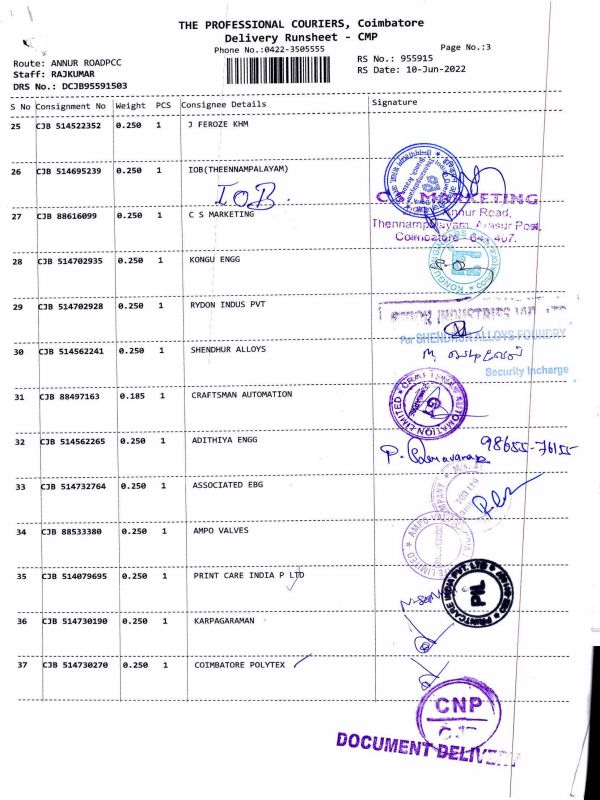 THE PROFESSIONAL COURIERS, Coimbatore
Delivery Runsheet - CMP
Phone No.:0422-3505555
Page No.:3
Route: ANNUR ROADPCC
RS No.: 955915
Staff: RAJKUMAR
RS Date: 10-Jun-2022
DRS No.: DCJB95591503
S No Consignment No Weight PCS Consignee Details Signature
25 CJB 514522352 0.250 1 J FEROZE KHM
26 CJB 514695239 0.250 1 IOB(THEENNAMPALAYAM)
IOB.
C.S. MARKETING
27 CJB 88616099 0.250 1 C S MARKETING
Annur Road,
Thennampalayam, Arasur Post,
Coimbatore - 641 407.
28 CJB 514702935 0.250 1 KONGU ENGG
29 CJB 514702928 0.250 1 RYDON INDUS PVT
For SHENDHUR ALLOYS FOUNDRY
30 CJB 514562241 0.250 1 SHENDHUR ALLOYS
Security Incharge
31 CJB 88497163 0.185 1 CRAFTSMAN AUTOMATION
CRAFTSMAN AUTOMATION LIMITED
32 CJB 514562265 0.250 1 ADITHIYA ENGG
98655-76155
33 CJB 514732764 0.250 1 ASSOCIATED EBG
34 CJB 88533380 0.250 1 AMPO VALVES
35 CJB 514079695 0.250 1 PRINT CARE INDIA P LTD
PRINTCARE INDIA PVT. LTD
PIL
36 CJB 514730190 0.250 1 KARPAGARAMAN
37 CJB 514730270 0.250 1 COIMBATORE POLYTEX
CNP
DOCUMENT DELIVERY